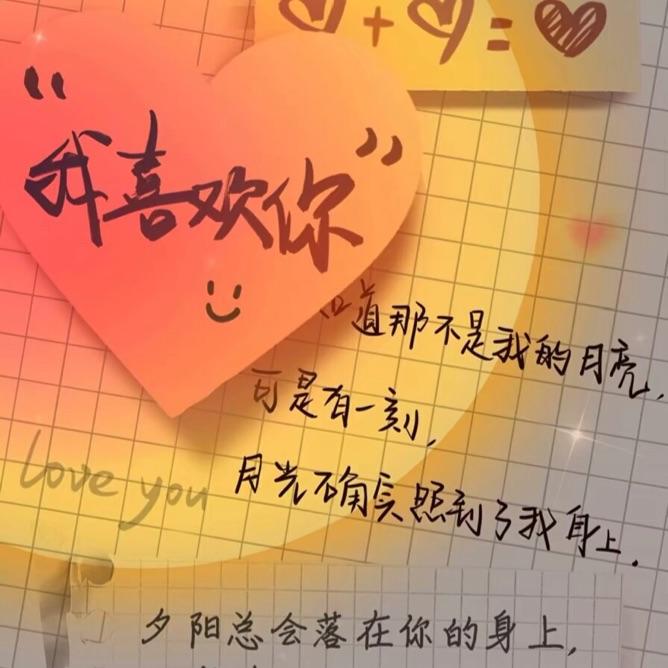 "我喜欢你"
道那不是我的月亮,
可是有一刻,
月光确实照到了我身上.
love you
夕阳总会落在你的身上,